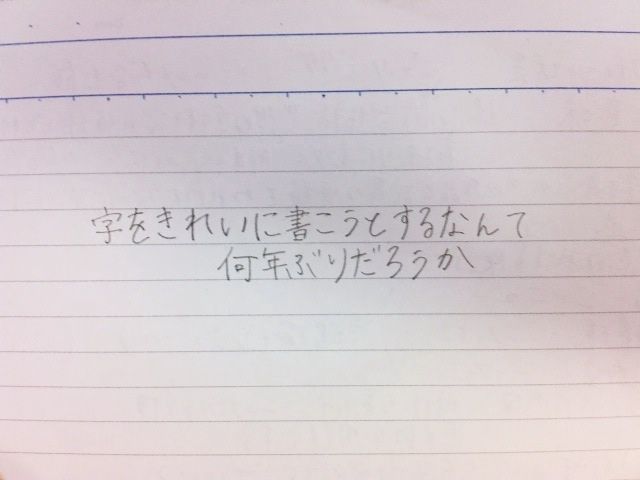 字をきれいに書こうとするなんて
何年ぶりだろうか